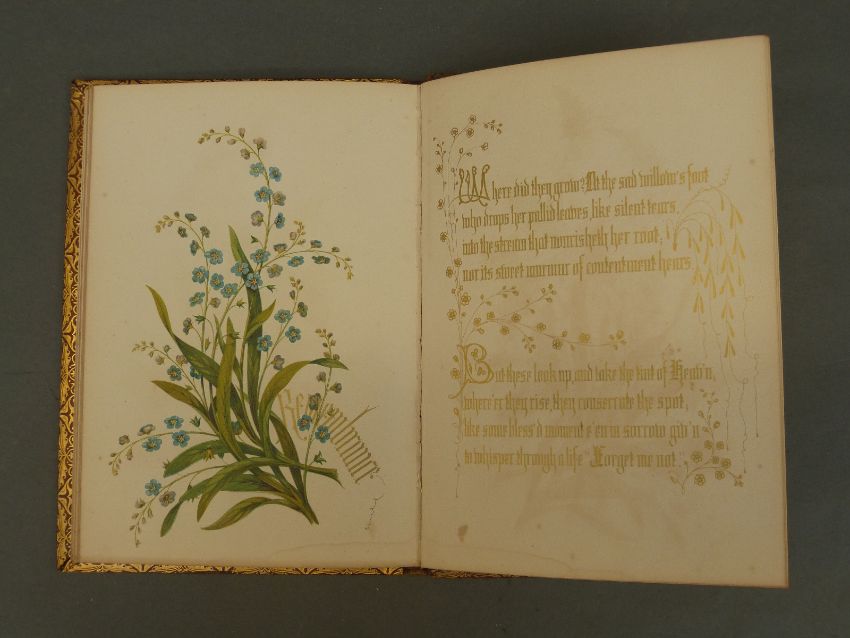 Remembrance
Where did they grow? At the sad willow's foot
who drops her pallid leaves, like silent tears,
into the stream that nourisheth her root,
nor its sweet murmur of contentment hears.
But these look up, and take the tint of Heav'n,
where'er they rise, they consecrate the spot,
like some bless'd moment e'en in sorrow giv'n
to whisper through a life "Forget me not."